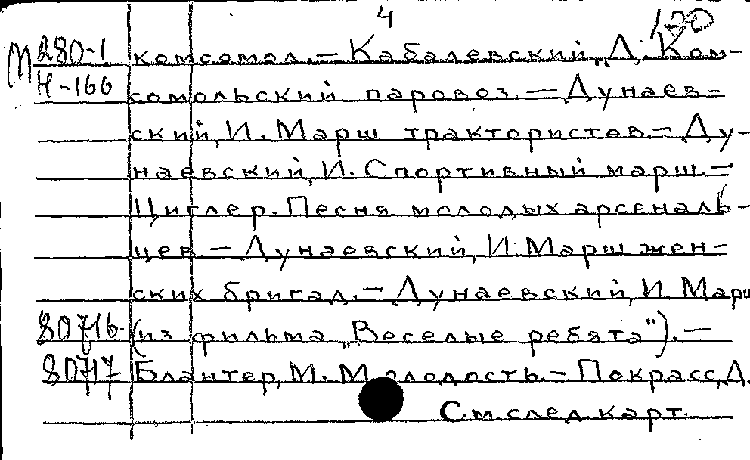 4 100
М 280-1 комсомол. — Кабалевский, Д. Ком-
Н-166 сомольский паровоз. — Дунаев-
ский, И. Марш трактористов. — Ду-
наевский, И. Спортивный марш. —
Циглер. Песня молодых арсеналь-
цев. — Дунаевский, И. Марш жен-
ских бригад. — Дунаевский, И. Марш
80716. (из фильма „Веселые ребята"). —
80717 Блантер, М. Молодость. — Покрасс, Д.
См. след. карт.